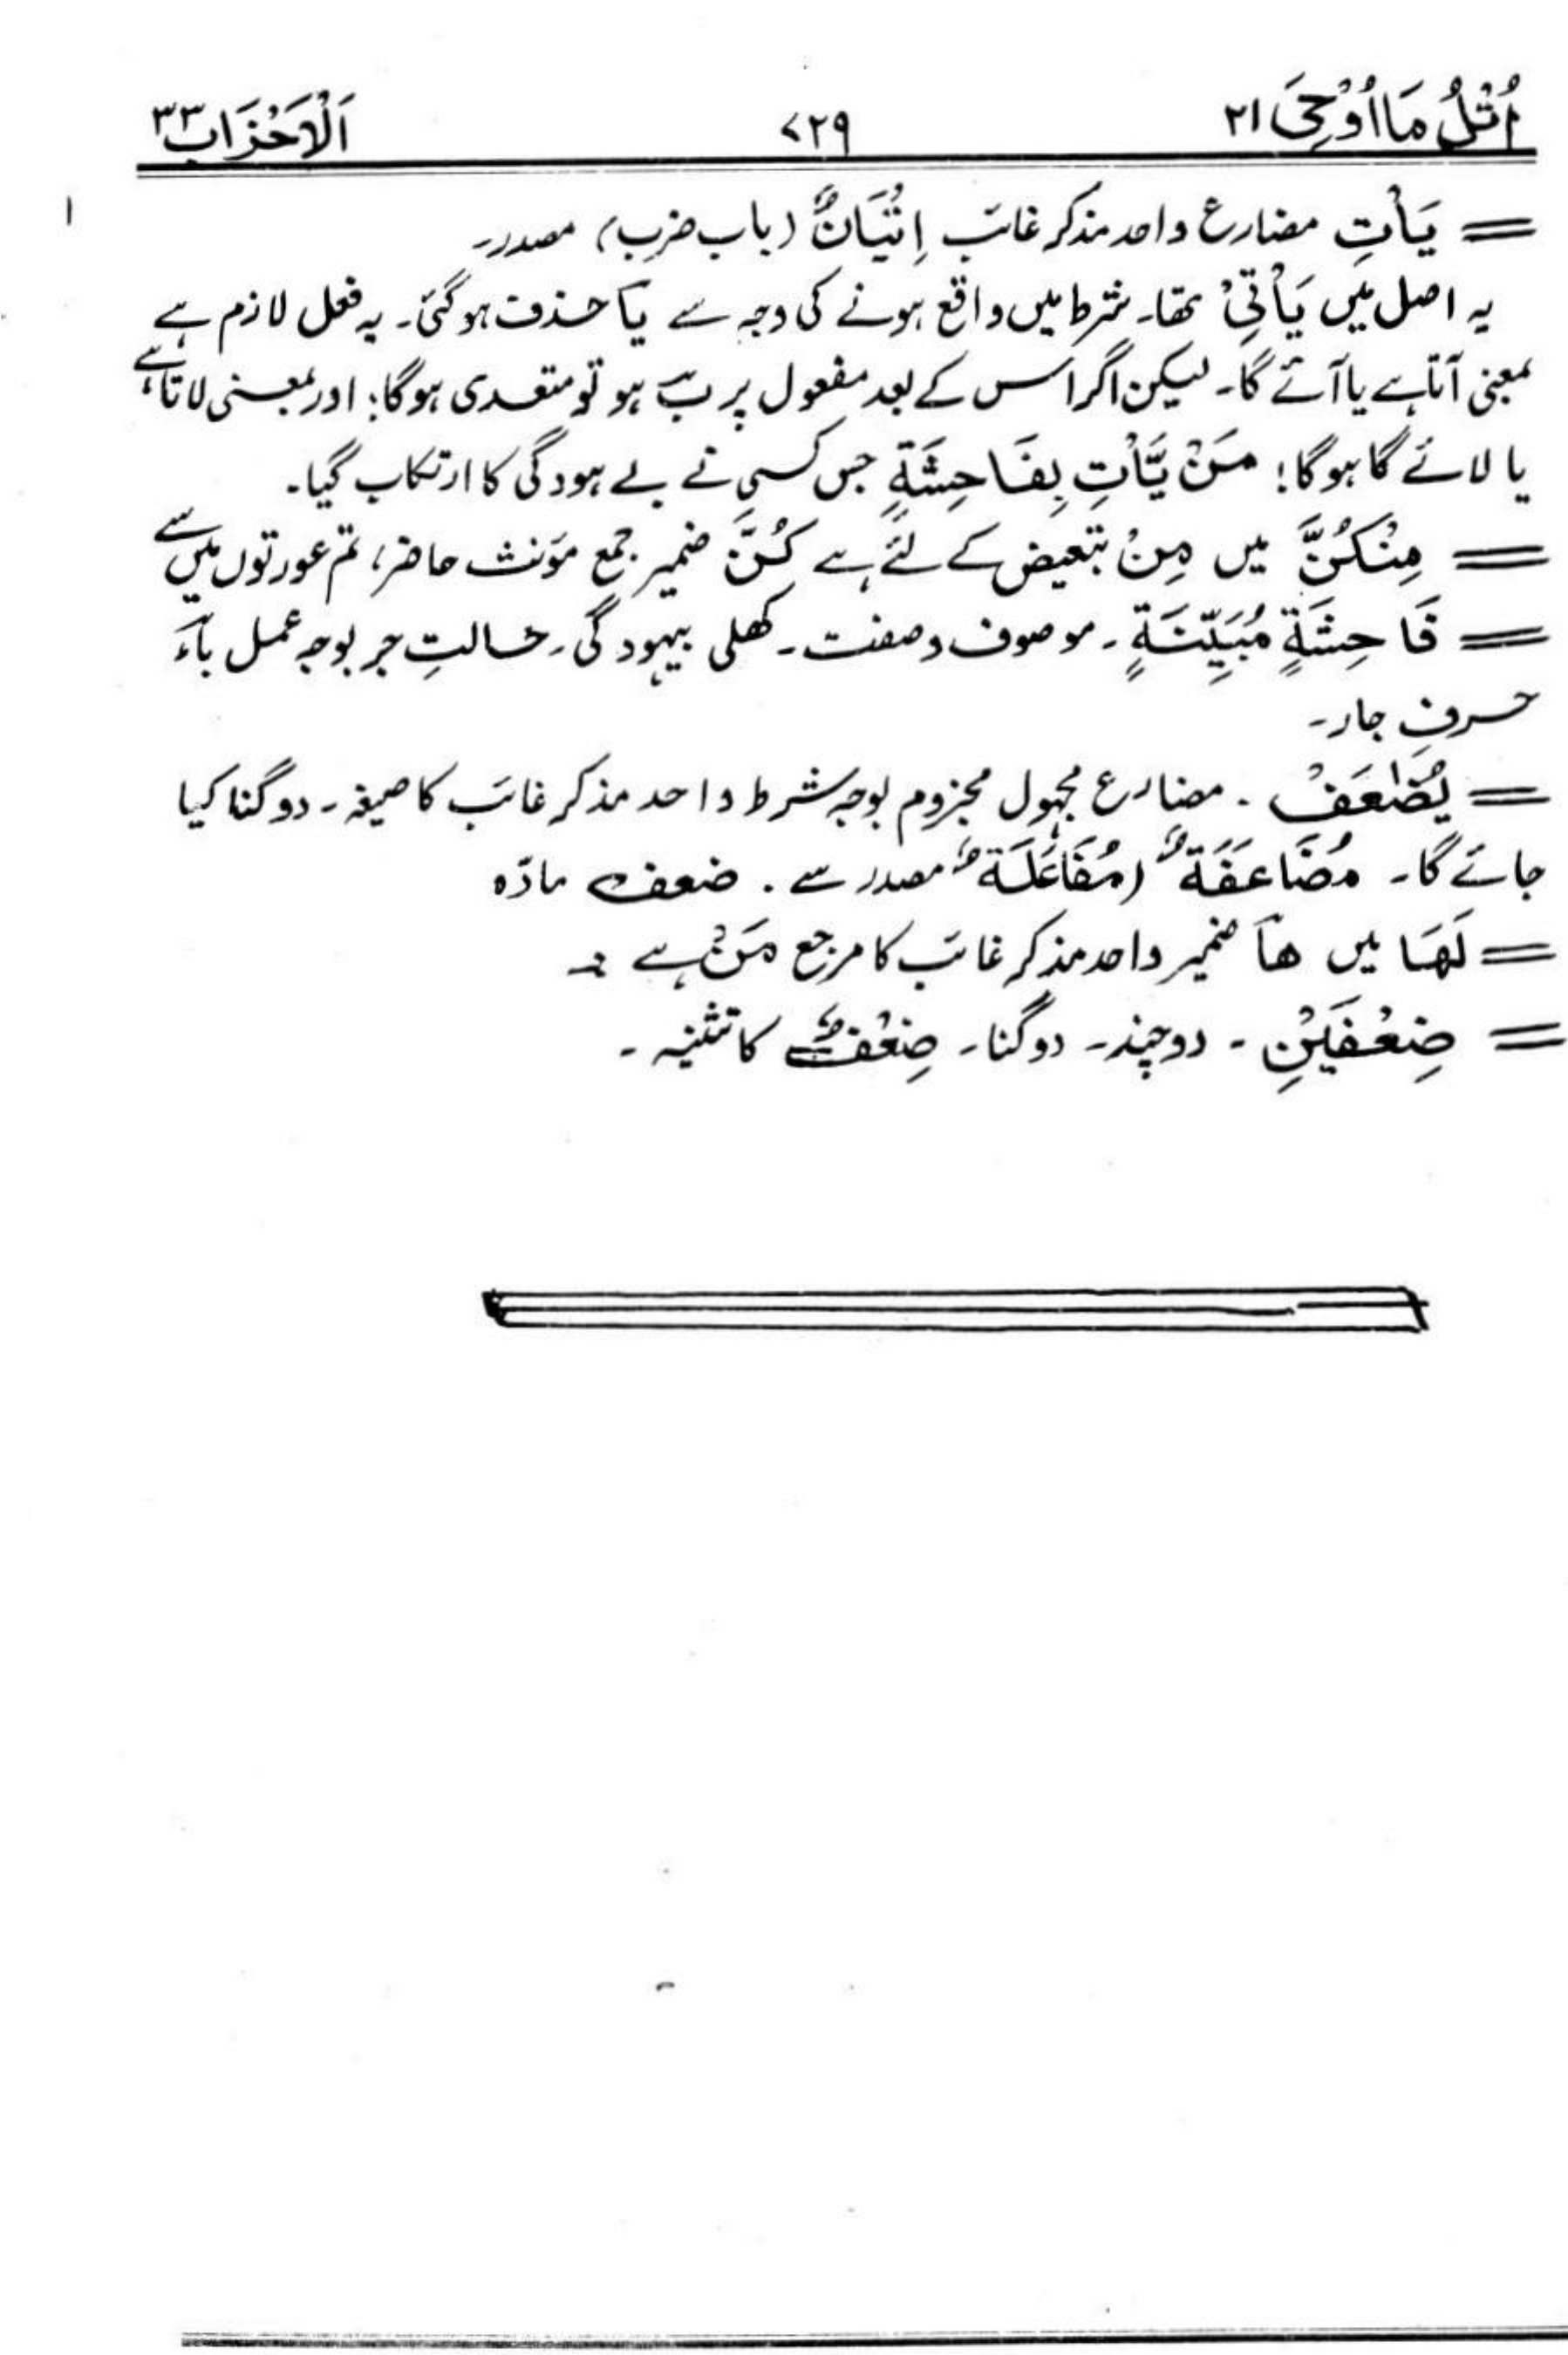 اُتْلُ مَا اُوْحِیَ ۲۱ ۷۲۹ اَلْاَحْزَاب ۳۳
= یَأْتِ مضارع واحد مذکر غائب اِتْیَانٌ (باب ضرب) مصدر۔
یہ اصل میں یَأْتِیْ تھا۔ شرط میں واقع ہونے کی وجہ سے یاَ حذف ہو گئی۔ یہ فعل لازم ہے
بمعنی آتا ہے یا آئے گا۔ لیکن اگر اس کے بعد مفعول پر بَ ہو تو متعدی ہوگا؛ اور بمعنی لاتا ہے
یا لائے گا ہوگا؛ مَنْ یَّأْتِ بِفَاحِشَةٍ جس کسی نے بے ہودگی کا ارتکاب کیا۔
= مِنْکُنَّ میں مِنْ تبعیض کے لئے ہے کُنَّ ضمیر جمع مؤنث حاضر، تم عورتوں میں سے
= فَاحِشَةٍ مُّبَیِّنَةٍ۔ موصوف و صفت۔ کھلی بیہودگی۔ حالتِ جر بوجہ عمل بآءَ
حرفِ جار۔
= یُضٰعَفْ۔ مضارع مجہول مجزوم بوجہ شرط واحد مذکر غائب کا صیغہ۔ دوگنا کیا
جائے گا۔ مُضَاعَفَةٌ (مُفَاعَلَةٌ) مصدر سے۔ ضعف مادّہ
= لَهَا میں هَا ضمیر واحد مذکر غائب کا مرجع مَنْ ہے۔
= ضِعْفَیْنِ۔ دوچند۔ دوگنا۔ ضِعْفٌ کا تثنیہ۔